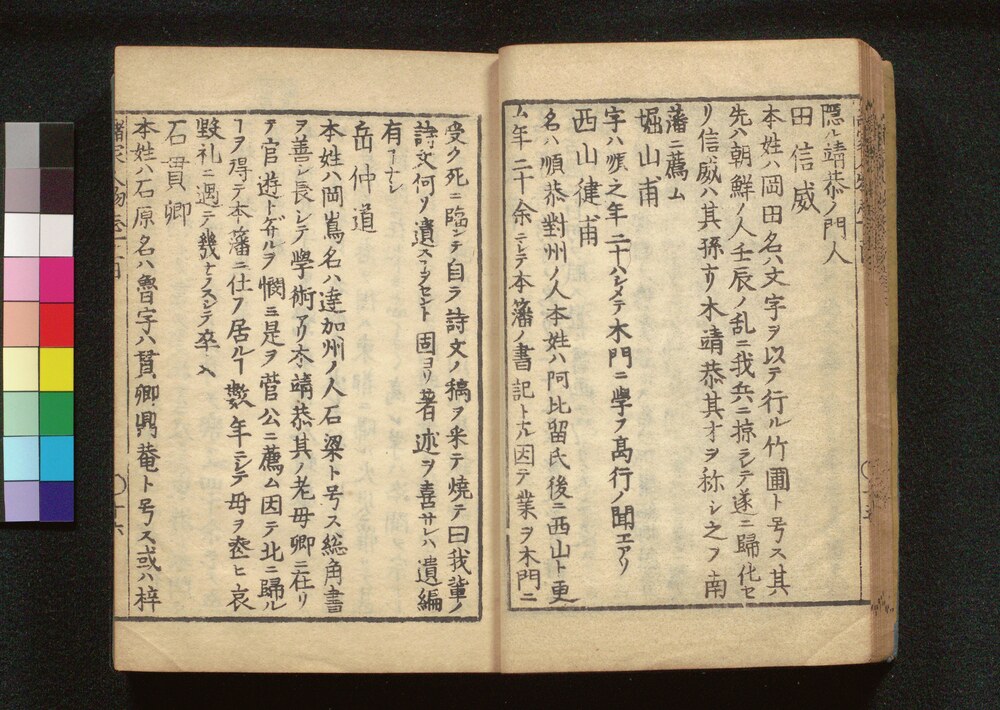 隠ル靖恭ノ門人
田信威
本姓ハ岡田名ハ文字ヲ以テ行ル竹圃ト号ス其
先ハ朝鮮ノ人壬辰ノ乱ニ我兵ニ掠ラレテ遂ニ帰化セ
リ信威ハ其孫ナリ木靖恭其才ヲ称シ之フ南
藩ニ薦ム
堀山甫
字ハ順之年二十ハシメテ木門ニ学フ高行ノ聞エアリ
西山健甫
名ハ順恭對州ノ人本姓ハ阿比留氏後ニ西山ト更
ム年二十余ニシテ本藩ノ書記トナル因テ業ヲ木門ニ
受ク死ニ臨ンテ自ラ詩文ノ稿ヲ采テ焼テ曰我輩ノ
詩文何ソ遺スヿヲセント固ヨリ著述ヲ喜サレハ遺編
有ヿナシ
岳仲道
本姓ハ岡嶌名ハ達加州ノ人石梁ト号ス総角書
ヲ善シ長シテ学術アリ木靖恭其ノ老母郷ニ在リ
テ官遊トゲザルヲ憫ミ是ヲ菅公ニ薦ム因テ北ニ歸ル
ヿヲ得テ本藩ニ仕フ居ルヿ数年ニシテ母ヲ喪ヒ哀
毀礼ニ過テ幾ナラスシテ卒ス
石貫卿
本姓ハ石原名ハ魯字ハ貫卿鼎菴ト号ス或ハ梓